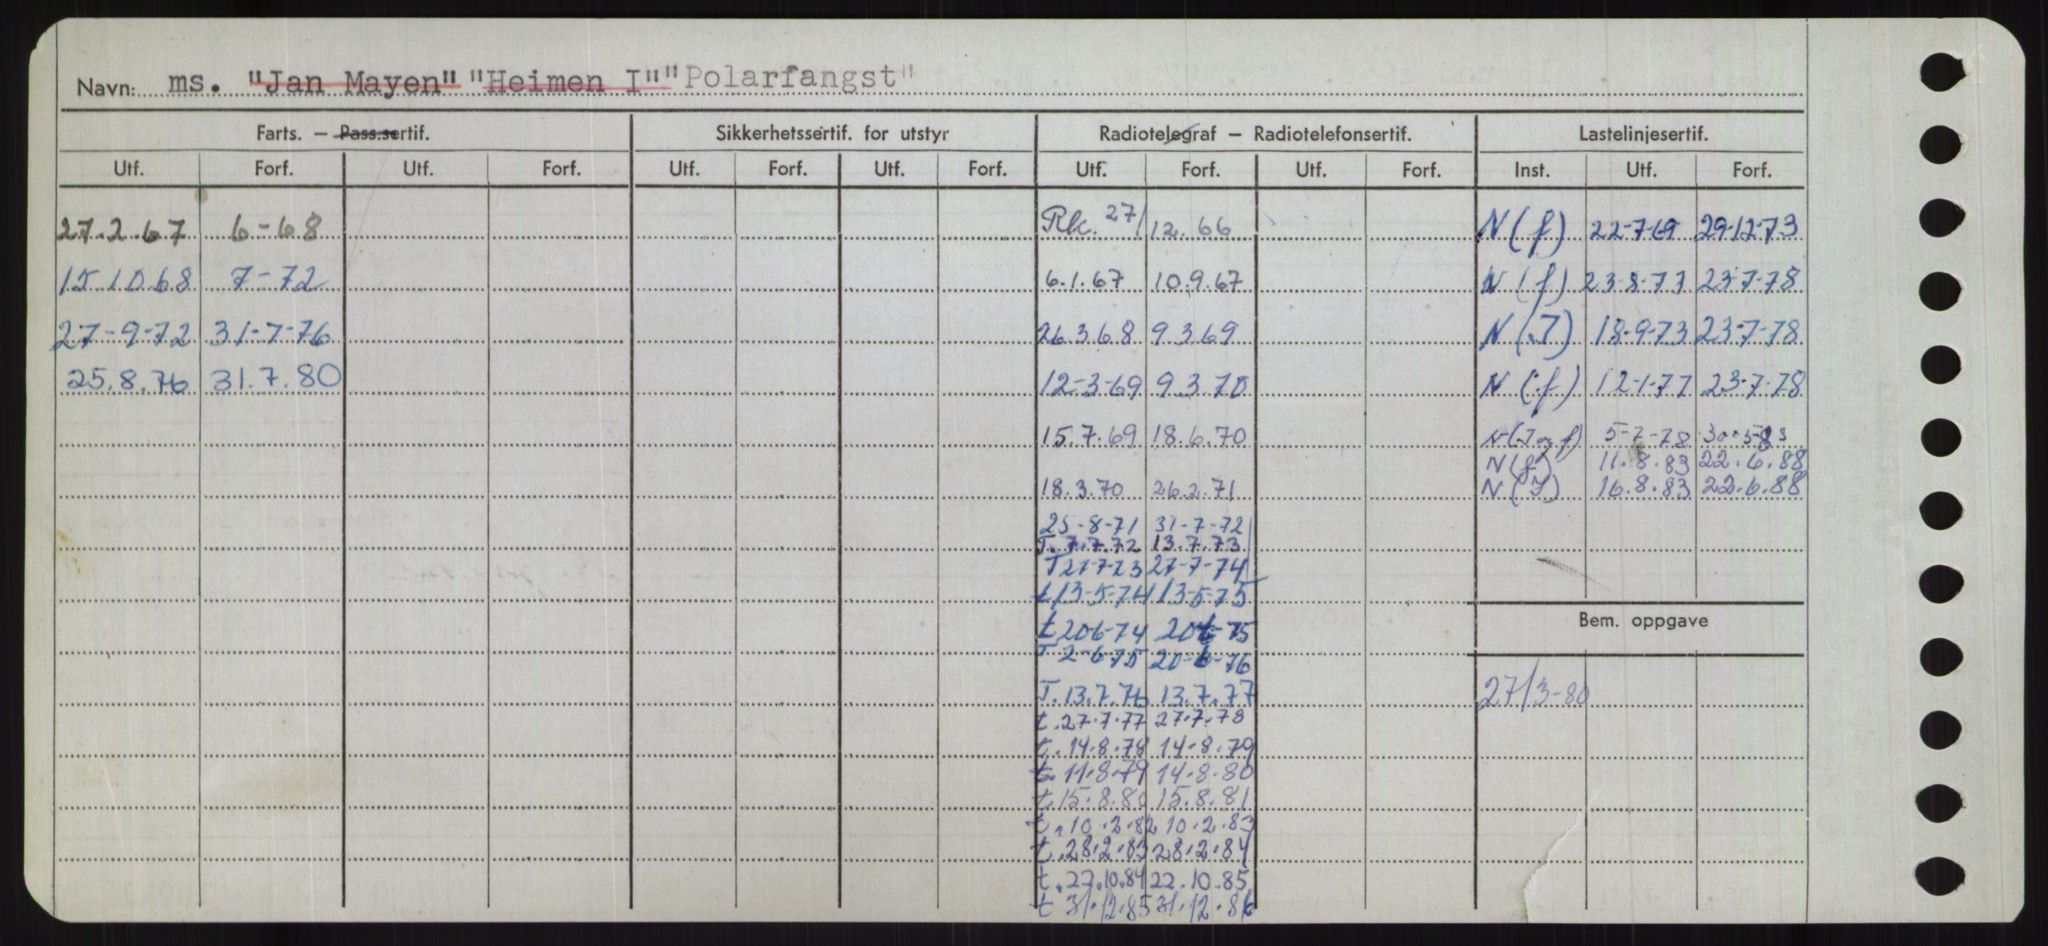 Navn: ms. "Jan Mayen" "Heimen I" "Polarfangst"
Farts. — Pass.sertif. Sikkerhetssertif. for utstyr Radiotelegraf — Radiotelefonsertif. Lastelinjesertif.
Utf. Forf. Utf. Forf. Utf. Forf. Utf. Forf. Utf. Forf. Utf. Forf. Inst. Utf. Forf.
27.2.67 6-68 Rk. 27/12.66 N(f) 22-7-69 29-12-73
15.10.68 7-72 6.1.67 10.9.67 N(f) 23-8-77 23-7-78
27-9-72 31-7-76 26.3.68 9.3.69 N(I) 18-9-73 23-7-78
25.8.76 31.7.80 12-3-69 9.3.70 N(f) 12-1-77 23-7-78
15.7.69 18.6.70 N(I og f) 5-7-78 30-5-83
N(f) 11.8.83 22.6.88
18.3.70 26.2.71 N(I) 16.8.83 22.6.88
25-8-71 31-7-72
T. 7.7.72 13.7.73
T 27-7-73 27-7-74
t 13-5-74 13-5-75
t 20-6-74 20-6-75
Bem. oppgave
T 2-6-75 20-6-76
T. 13.7.76 13.7.77 27/3-80
t. 27.7.77 27.7.78
t. 14.8.78 14.8.79
t. 11.8.79 14.8.80
t. 15.8.80 15.8.81
t. 10.2.82 10.2.83
t. 28.2.83 28.2.84
t. 22.10.84 22.10.85
t 31.12.85 31.12.86